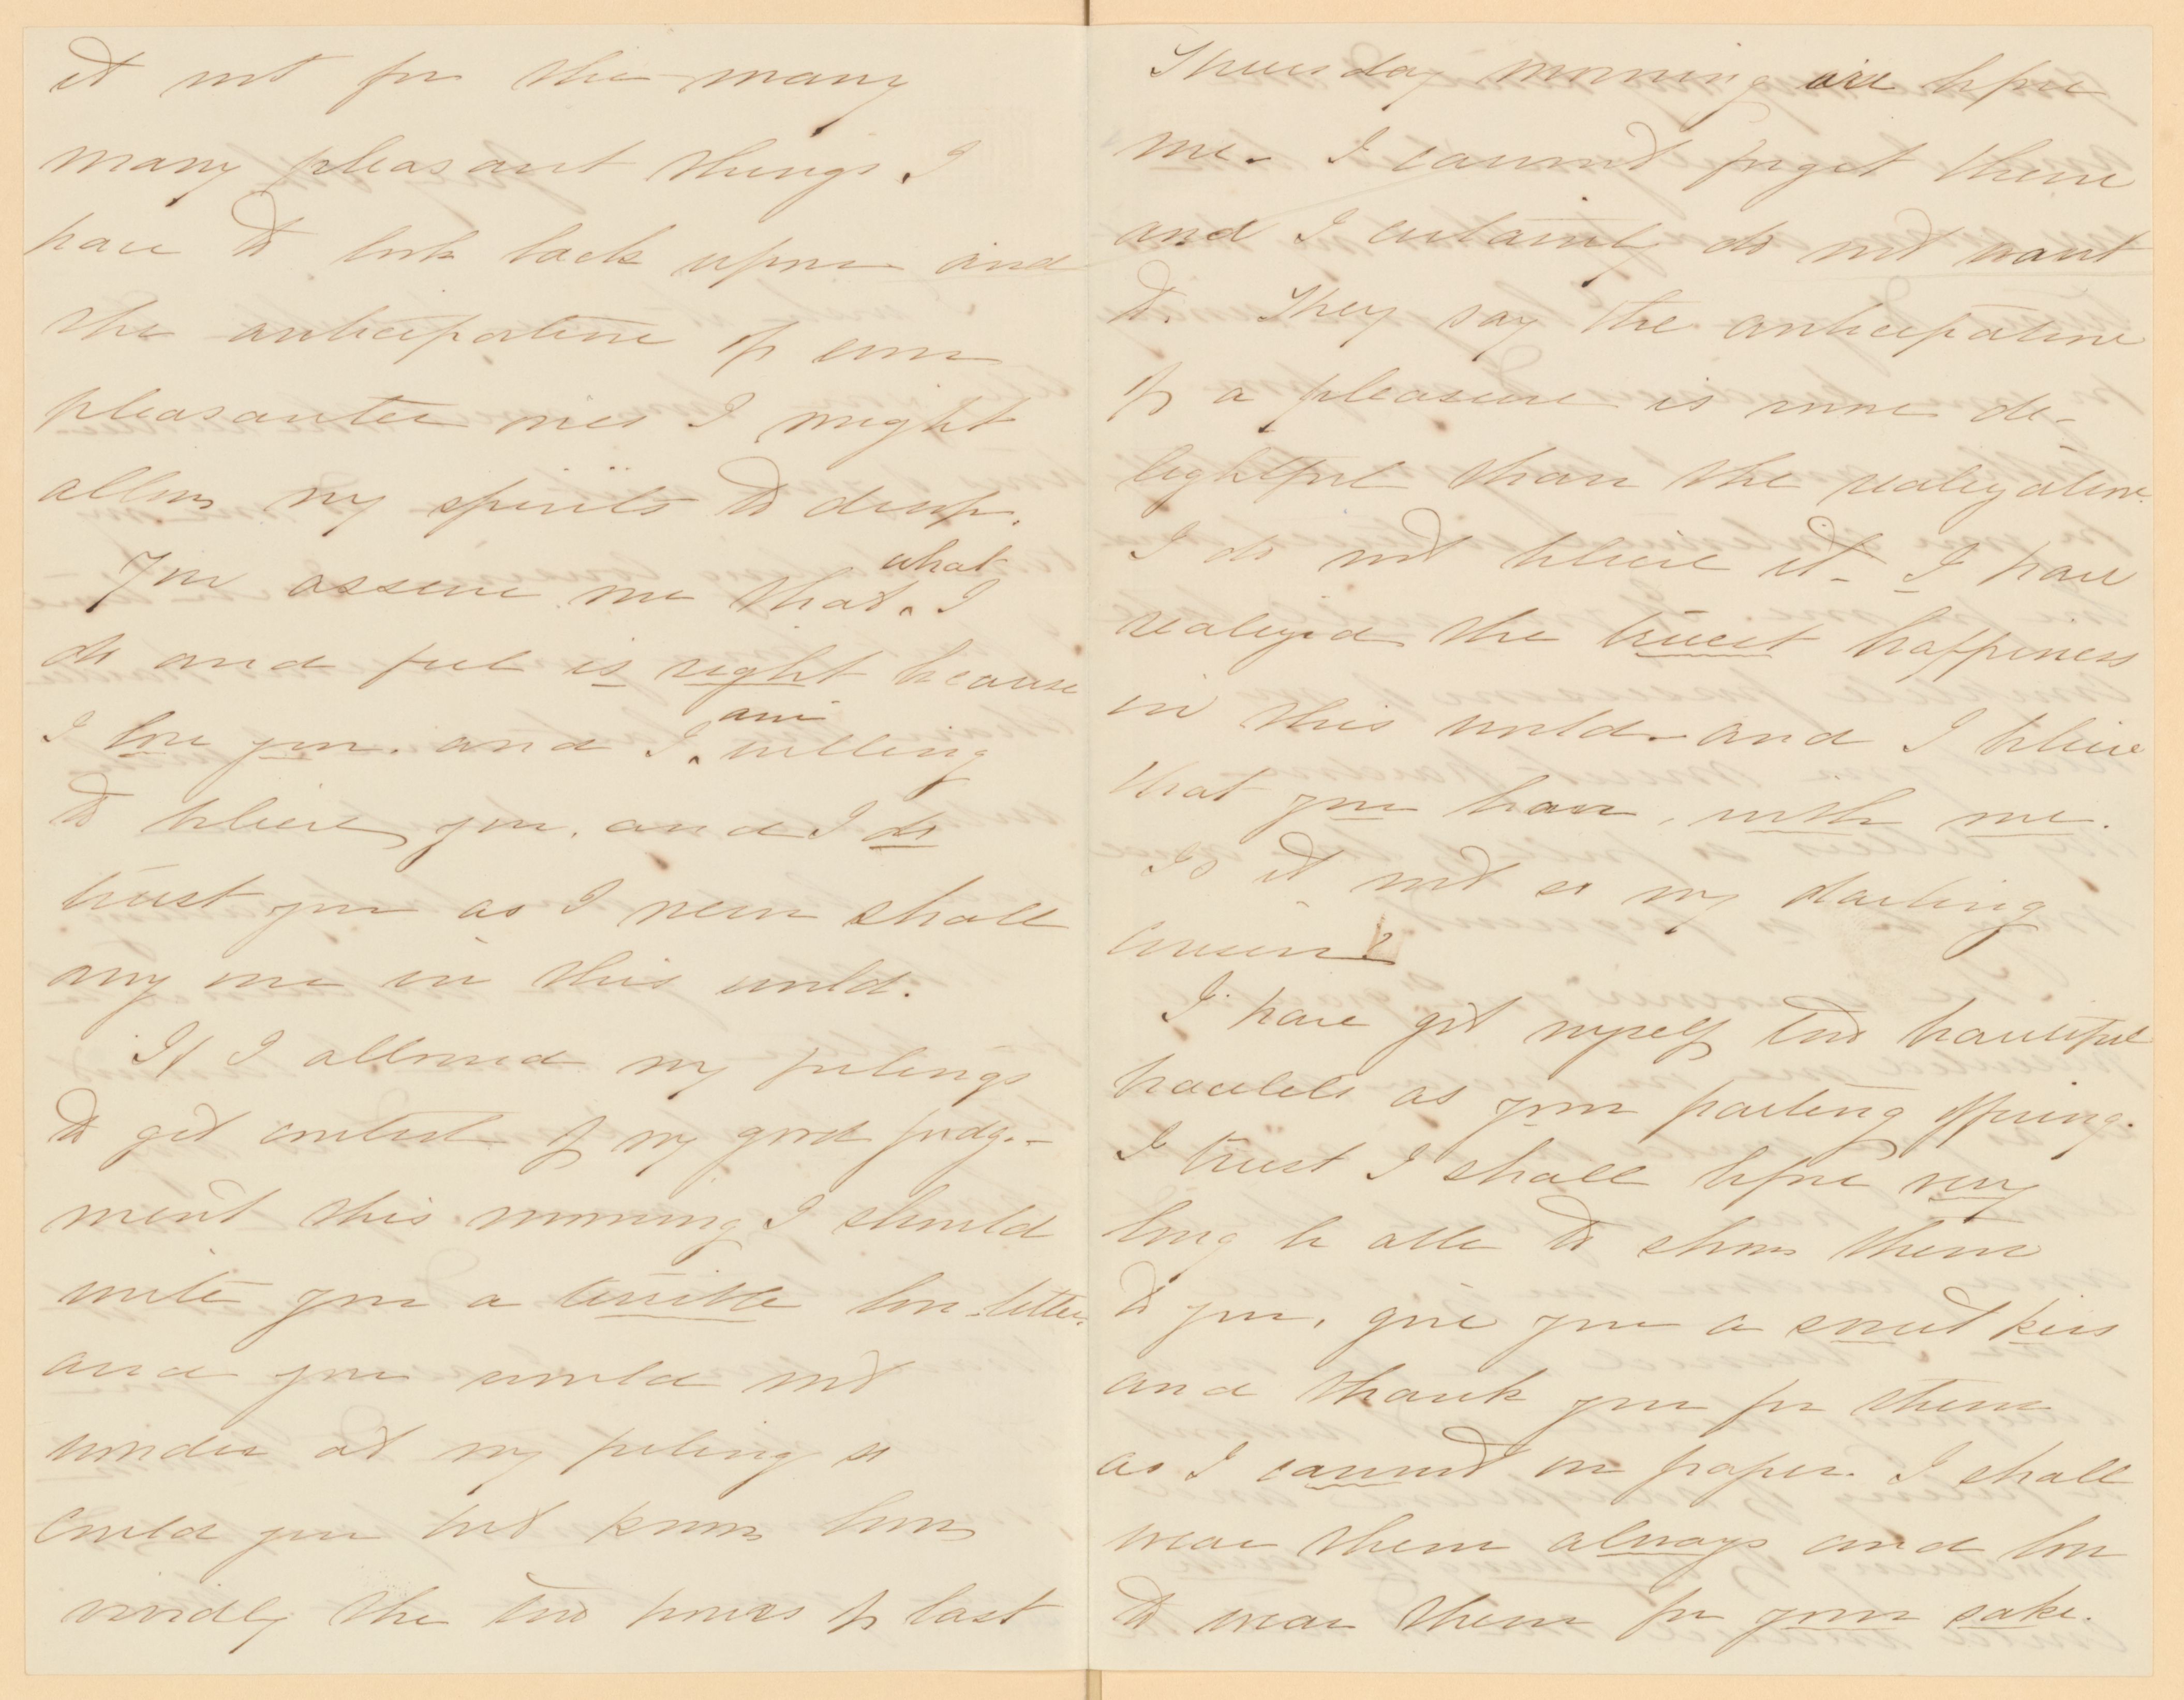 it not for the many
many pleasant things I
have to look back upon and
the anticipation of even
pleasanter ones I might
allow my spirits to droop.
You assure me that what I
do and feel is right because
I love you. and I am willing
to believe you, and I do
trust you as I never shall
any one in this world.
If I allowed my feelings
to get control of my good judg-
ment this morning I should
write you a terrible love-letter,
and you would not
wonder at my feeling so
could you but know how
vividly the two hours of last
Thursday morning are before
me. I cannot forget them
and I certainly do not want
to. They say the anticipation
of a pleasure is more de-
lightful than the realization.
I do not believe it - I have
realized the truest happiness
in this world - and I believe
that you have, with me.
Is it not so my darling
cousin?
I have got myself two beautiful
bracelets as your parting offering.
I trust I shall before very
long be able to show them
to you, give you a sweet kiss
and thank you for them
as I cannot on paper. I shall
wear them always and love
to wear them for your sake.